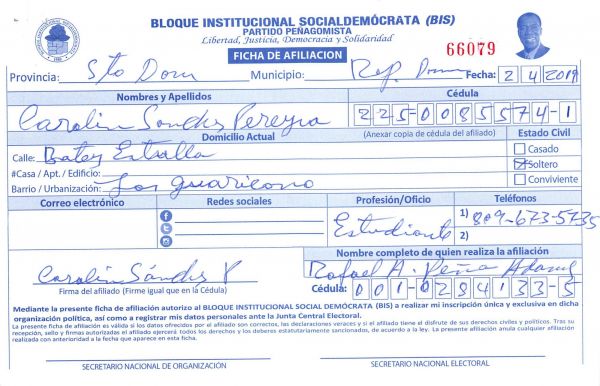 BLOQUE INSTITUCIONAL SOCIALDEMÓCRATA (BIS)
PARTIDO PEÑAGOMISTA
Libertad, Justicia, Democracia y Solidaridad
FICHA DE AFILIACION
66079
Provincia: Sto Dom Municipio: Rep. Dom Fecha: 2 4 2019
Nombres y Apellidos Cédula
Carolin Sánches Pereyra 225-0085574-1
Domicilio Actual (Anexar copia de cédula del afiliado) Estado Civil
Calle: Batey Estrella Casado
#Casa / Apt. / Edificio: Soltero
Barrio / Urbanización: Los guaricano Conviviente
Correo electrónico Redes sociales Profesión/Oficio Teléfonos
Estudiante 1) 809-673-5735
2)
Nombre completo de quien realiza la afiliación
Carolin Sánches P Rafael A. Peña
Firma del afiliado (Firme igual que en la Cédula) Cédula: 001-0284133-5
Mediante la presente ficha de afiliación autorizo al BLOQUE INSTITUCIONAL SOCIAL DEMÓCRATA (BIS) a realizar mi inscripción única y exclusiva en dicha
organización política, así como a registrar mis datos personales ante la Junta Central Electoral.
La presente ficha de afiliación es válida si los datos ofrecidos por el afiliado son correctos, las declaraciones veraces y si el afiliado tiene el disfrute de sus derechos civiles y políticos. Tras su
recepción, sello y firmas autorizadas el afiliado ejercerá todos los derechos y los deberes estatutariamente sancionados, de acuerdo a la ley. La presente afiliación anula cualquier afiliación
realizada con anterioridad a la fecha que aparece en esta ficha.
SECRETARIO NACIONAL DE ORGANIZACIÓN SECRETARIO NACIONAL ELECTORAL